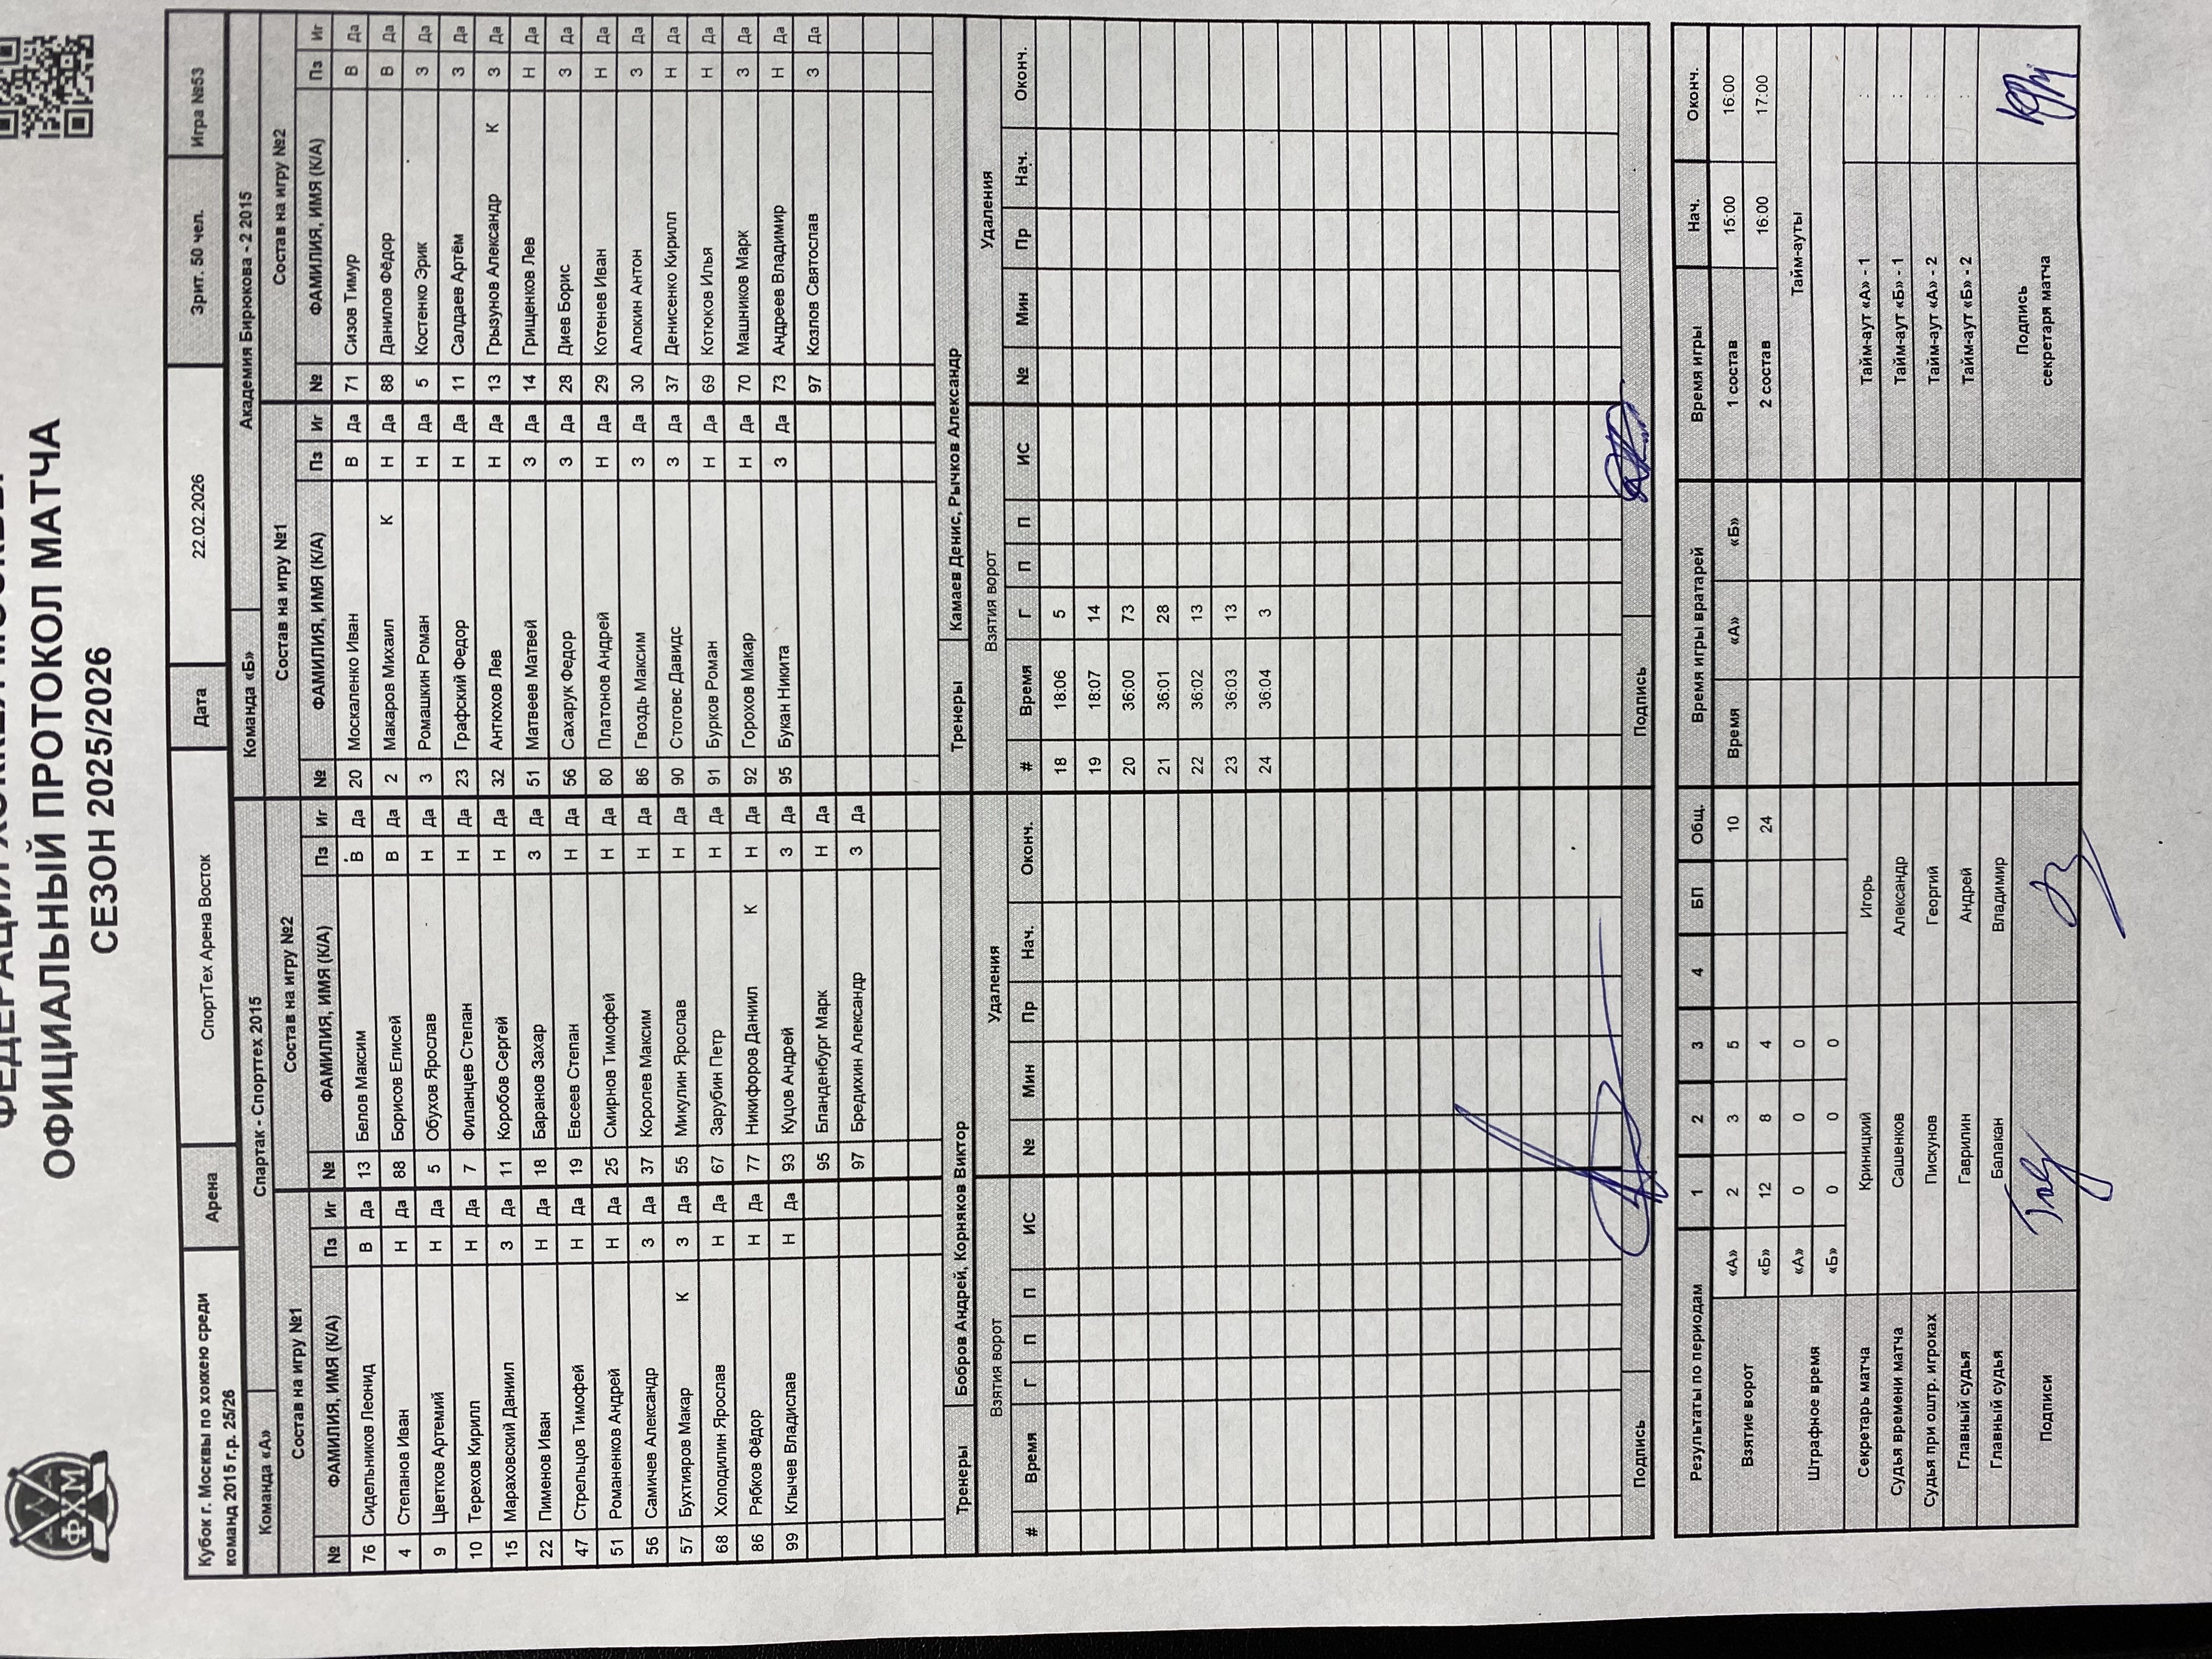 ОФИЦИАЛЬНЫЙ ПРОТОКОЛ МАТЧА
СЕЗОН 2025/2026
ФХМ
Кубок г. Москвы по хоккею среди команд 2015 г.р. 25/26 Арена СпортТех Арена Восток Дата 22.02.2026 Зрит. 50 чел. Игра №53
Команда «А» Спартак - Спорттех 2015 Команда «Б» Академия Бирюкова - 2 2015
Состав на игру №1 Состав на игру №2 Состав на игру №1 Состав на игру №2
№ ФАМИЛИЯ, ИМЯ (К/А) Пз Иг № ФАМИЛИЯ, ИМЯ (К/А) Пз Иг № ФАМИЛИЯ, ИМЯ (К/А) Пз Иг № ФАМИЛИЯ, ИМЯ (К/А) Пз Иг
76 Сидельников Леонид В Да 13 Белов Максим В Да 20 Москаленко Иван В Да 71 Сизов Тимур В Да
4 Степанов Иван Н Да 88 Борисов Елисей В Да 2 Макаров Михаил К Н Да 88 Данилов Фёдор В Да
9 Цветков Артемий Н Да 5 Обухов Ярослав Н Да 3 Ромашкин Роман Н Да 5 Костенко Эрик З Да
10 Терехов Кирилл Н Да 7 Филанцев Степан Н Да 23 Графский Федор Н Да 11 Салдаев Артём З Да
15 Мараховский Даниил З Да 11 Коробов Сергей Н Да 32 Антюхов Лев Н Да 13 Грызунов Александр К З Да
22 Пименов Иван Н Да 18 Баранов Захар З Да 51 Матвеев Матвей З Да 14 Грищенков Лев Н Да
47 Стрельцов Тимофей Н Да 19 Евсеев Степан Н Да 56 Сахарук Федор З Да 28 Диев Борис З Да
51 Романенков Андрей Н Да 25 Смирнов Тимофей Н Да 80 Платонов Андрей Н Да 29 Котенев Иван Н Да
56 Самичев Александр З Да 37 Королев Максим Н Да 86 Гвоздь Максим З Да 30 Апокин Антон З Да
57 Бухтияров Макар К З Да 55 Микулин Ярослав Н Да 90 Стоговс Давидс З Да 37 Денисенко Кирилл Н Да
68 Холодилин Ярослав Н Да 67 Зарубин Петр Н Да 91 Бурков Роман Н Да 69 Котюков Илья Н Да
86 Рябков Фёдор Н Да 77 Никифоров Даниил К Н Да 92 Горохов Макар Н Да 70 Машников Марк З Да
99 Клычев Владислав Н Да 93 Куцов Андрей З Да 95 Букан Никита З Да 73 Андреев Владимир Н Да
95 Бланденбург Марк Н Да 97 Козлов Святослав З Да
97 Бредихин Александр З Да
Тренеры Бобров Андрей, Корняков Виктор Тренеры Камаев Денис, Рычков Александр
Взятия ворот Удаления Взятия ворот Удаления
# Время Г П П ИС № Мин Пр Нач. Оконч. # Время Г П П ИС № Мин Пр Нач. Оконч.
18 18:06 5
19 18:07 14
20 36:00 73
21 36:01 28
22 36:02 13
23 36:03 13
24 36:04 3
Подпись Подпись
Результаты по периодам 1 2 3 4 БП Общ. Время игры вратарей Время игры Нач. Оконч.
Взятие ворот «А» 2 3 5 10 Время «А» «Б» 1 состав 15:00 16:00
«Б» 12 8 4 24 2 состав 16:00 17:00
Штрафное время «А» 0 0 0 Тайм-ауты
«Б» 0 0 0
Секретарь матча Криницкий Игорь Тайм-аут «А» - 1 :
Судья времени матча Сашенков Александр Тайм-аут «Б» - 1 :
Судья при оштр. игроках Пискунов Георгий Тайм-аут «А» - 2 :
Главный судья Гаврилин Андрей Тайм-аут «Б» - 2 :
Главный судья Балакан Владимир Подпись секретаря матча
Подписи